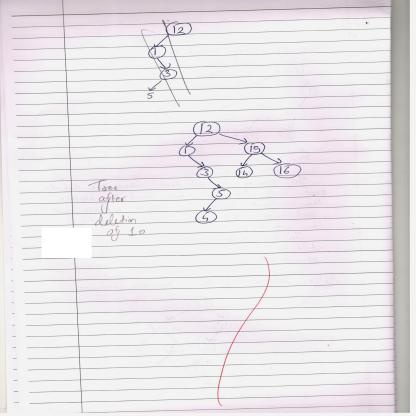 12
1
3
5
12
1 15
3 14 16
5
4
Tree
after
deletion
of 10